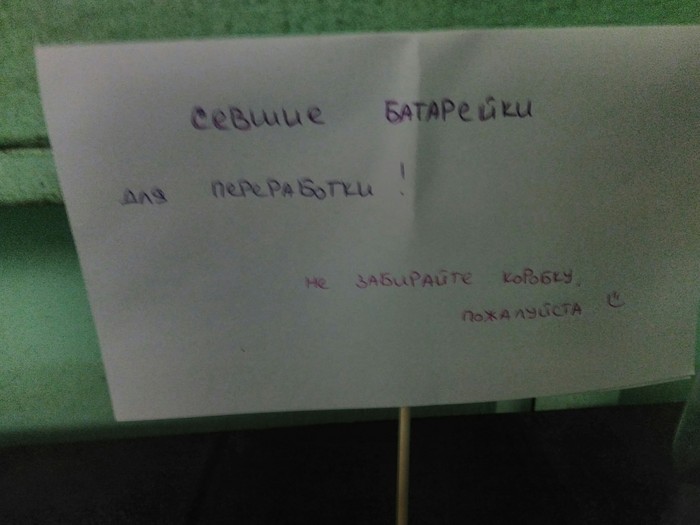 севшие батарейки
для переработки!
не забирайте коробку,
пожалуйста ☺